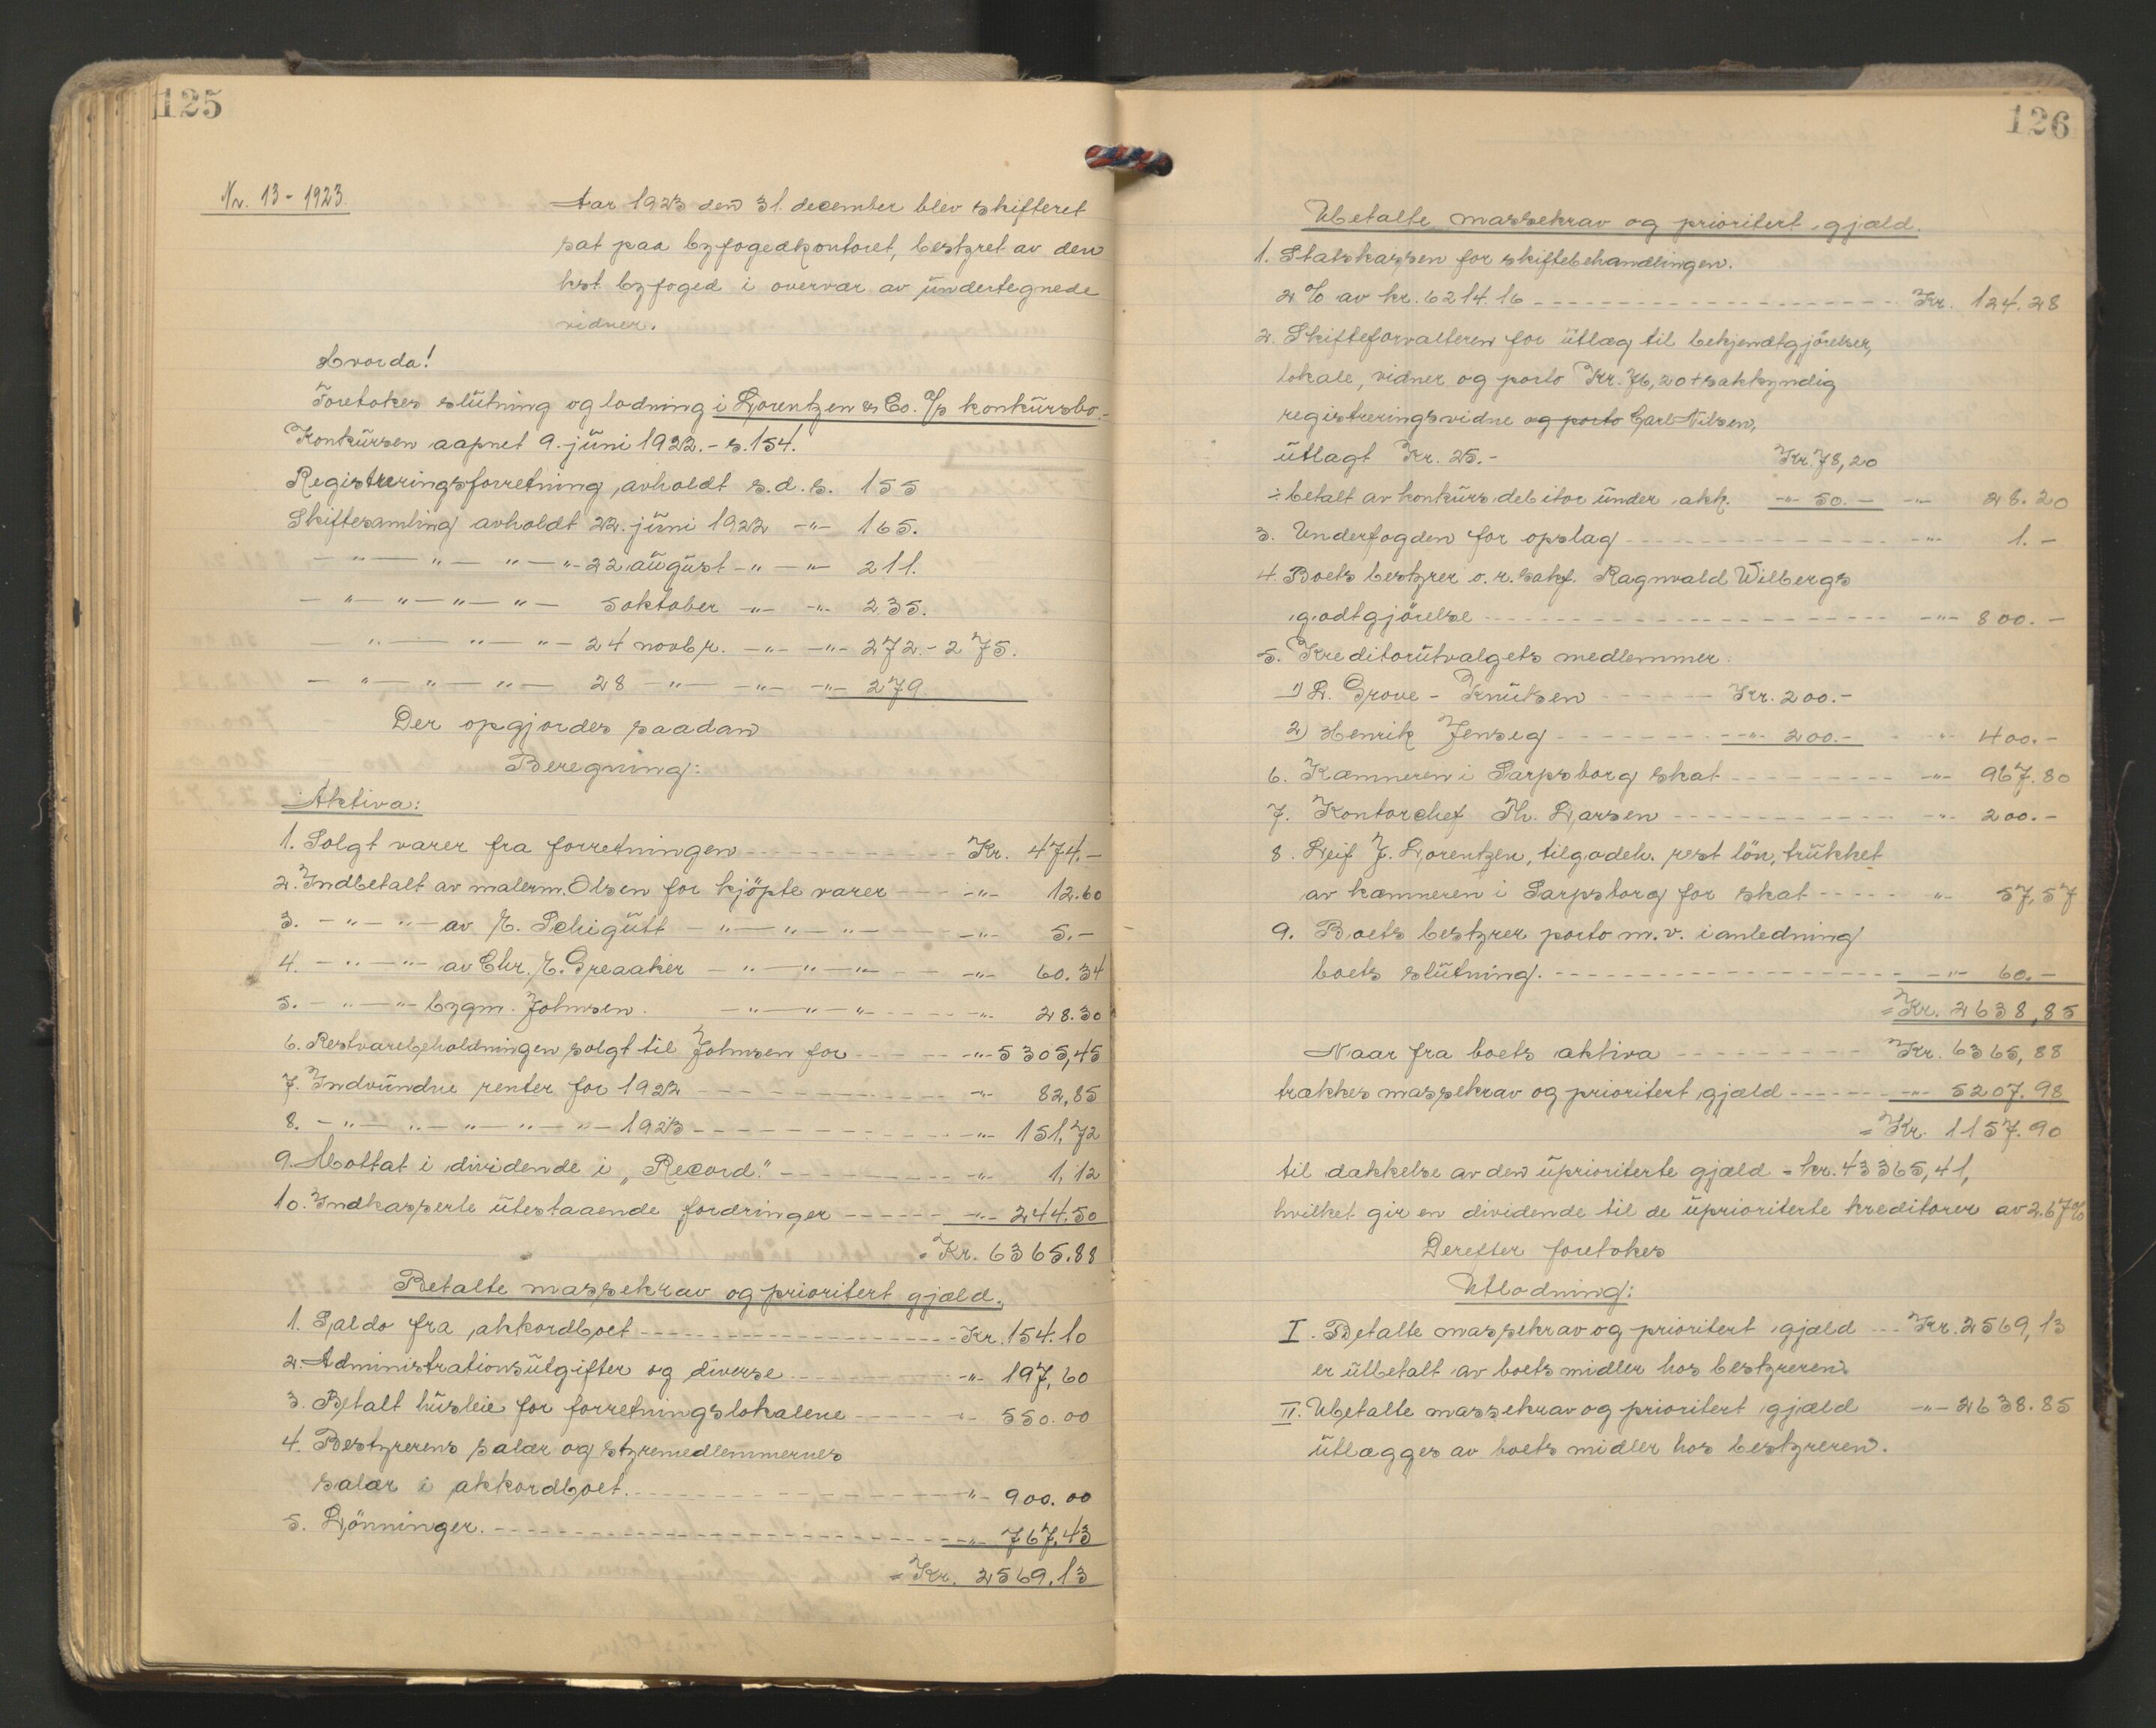 125
Nr. 13 - 1923.
Aar 1923 den 31. december blev skifteret
sat paa byfogedkontoret, bestyret av den
kst. byfoged i overvær av undertegnede
vidner.
Hvorda!
Foretokes slutning og lodning i Lorentzen & Co. A/s konkursbo.-
Konkursen aapnet 9. juni 1922. - s. 154.
Registreringsforretning avholdt s.d. s. 155
Skiftesamling avholdt 22. juni 1922 -"- 165.
- " - " - " - " - 22 august -"- -"- 211.
- " - " - " - " - 5 oktober -"- -"- 235.
- " - " - " - 24 novbr. -"- -"- 272.- 275.
- " - " - " - 28 -"- -"- -"- 279.
Der opgjordes saadan
Beregning:
Aktiva:
1. Solgt varer fra forretningen - - - Kr. 474.-
2. Indbetalt av malerm. Olsen for kjöpte varer - - - -"- 12.60
3. - " - " - av E. Schigutt - " - " - " - - - -"- 5.-
4. - " - " - av Chr. E. Greaaker - " - " - " - - - -"- 60.34
5. - " - " - bygm. Johnsen. - " - " - " - - - -"- 28.30
6. Restvarebeholdningen solgt til Johnsen for - - - -"- 5305,45
7. Indvundne renter for 1922 - - - -"- 82,85
8. - " - " - " - " - " - 1923 - - - -"- 151,72
9. Mottat i dividende i „Record." - - - -"- 1,12
10. Indkasserte utestaaende fordringer - - - -"- 244.50
= Kr. 6365.88
Betalte massekrav og prioritert gjæld.
1. Saldo fra akkordboet - - - Kr. 154.10
2. Administrationsutgifter og diverse - - - -"- 197,60
3. Betalt husleie for forretningslokalene - - - -"- 550.00
4. Bestyrerens salær og styremedlemmernes
salær i akkordboet. - - - -"- 900.00
5. Lönninger. - - - -"- 767,43
= Kr. 2569.13
126
Ubetalte massekrav og prioritert gjæld.
1. Statskassen for skiftebehandlingen.
2 % av kr. 6214.16 - - - Kr. 124.28
2. Skifteforvalteren for utlæg til bekjendtgjörelser,
lokale, vidner og porto Kr. 76,20 + sakkyndig
registreringsvidne og porto Carl Nilsen,
utlagt Kr. 25.- Kr. 78,20
÷ betalt av konkursdebitor under akk. -"- 50.- -"- 28.20
3. Underfogden for opslag - - - -"- 1.-
4. Boets bestyrer o.r.sakf. Ragnvald Wilbergs
godtgjörelse - - - -"- 800.-
5. Kreditorutvalgets medlemmer:
1) L. Grove - Knutsen - - - Kr. 200.-
2) Henrik Jenseg - - - -"- 200.- - -"- 400.-
6. Kæmneren i Sarpsborg skat - - - -"- 967.80
7. Kontorchef Th. Larsen - - - -"- 200.-
8. Leif J. Lorentzen, tilgodeh. rest lön, trukket
av kæmneren i Sarpsborg for skat - - - " - 57,57
9. Boets bestyrer porto m.v. i anledning
boets slutning. - - - -"- 60.-
= Kr. 2638,85
Naar fra boets aktiva - - - Kr. 6365,88
trækkes massekrav og prioritert gjæld - - - -"- 5207.98
= Kr. 1157.90
til dækkelse av den uprioriterte gjæld = kr. 43365,41,
hvilket gir en dividende til de uprioriterte kreditorer av 2.67%
Derefter foretokes
Utlodning:
I. Betalte massekrav og prioritert gjæld - - - Kr. 2569,13
er utbetalt av boets midler hos bestyreren.
II. Ubetalte massekrav og prioritert gjæld -"- 2638.85
utlægges av boets midler hos bestyreren.